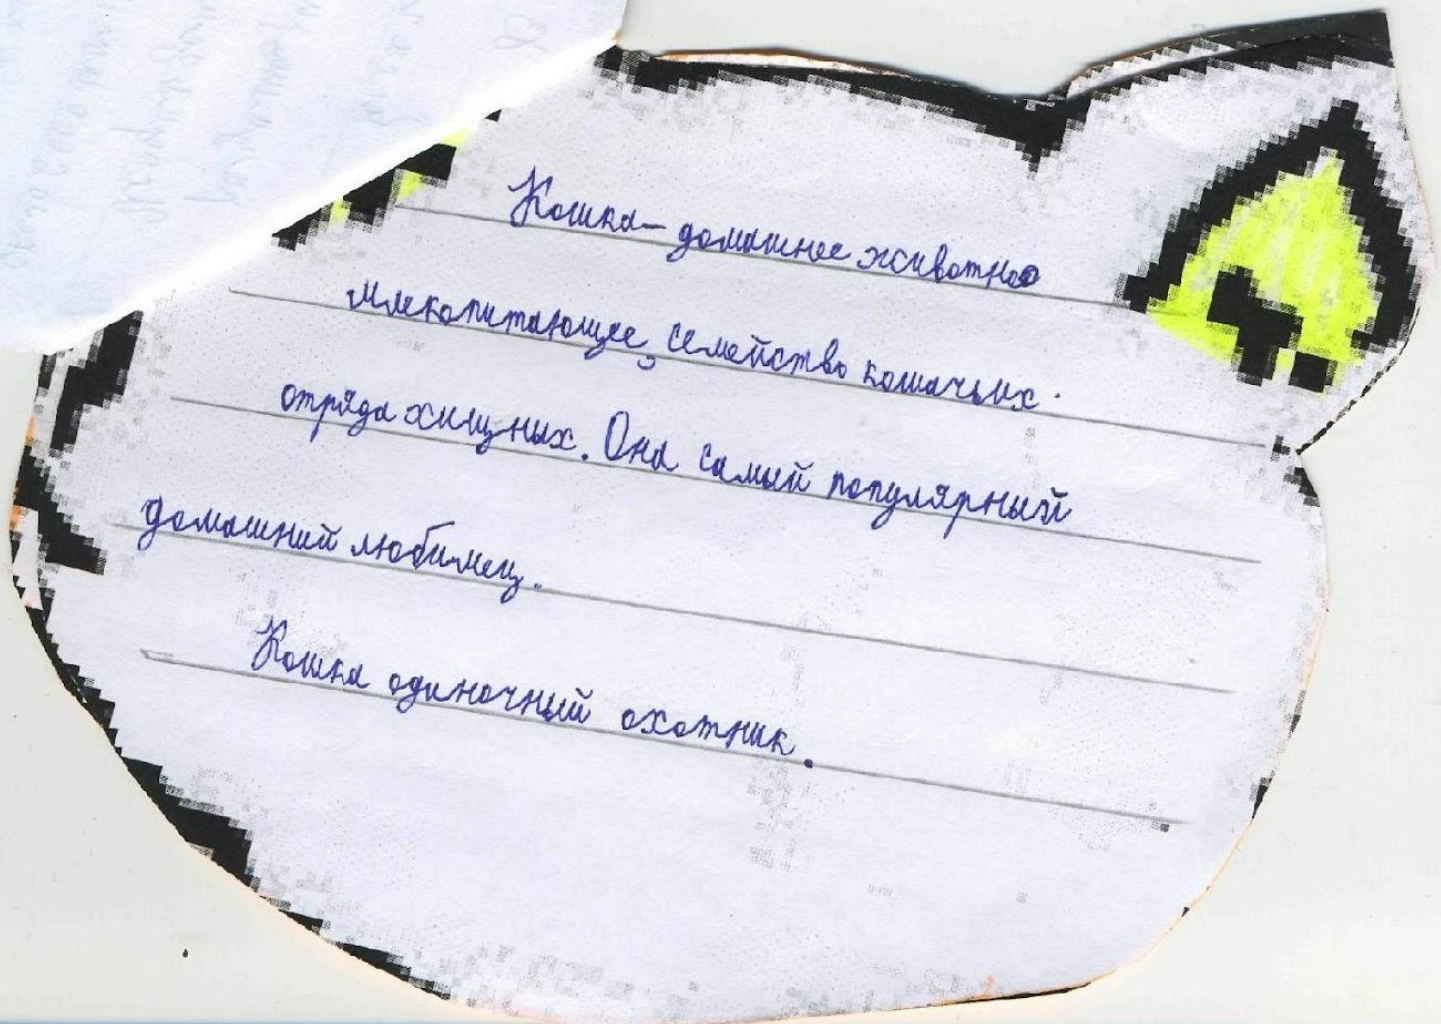 Кошка– домашнее животное
млекопитающее, семейство кошачьих.
отряда хищных. Она самый популярный
домашний любимец.
Кошка одиночный охотник.